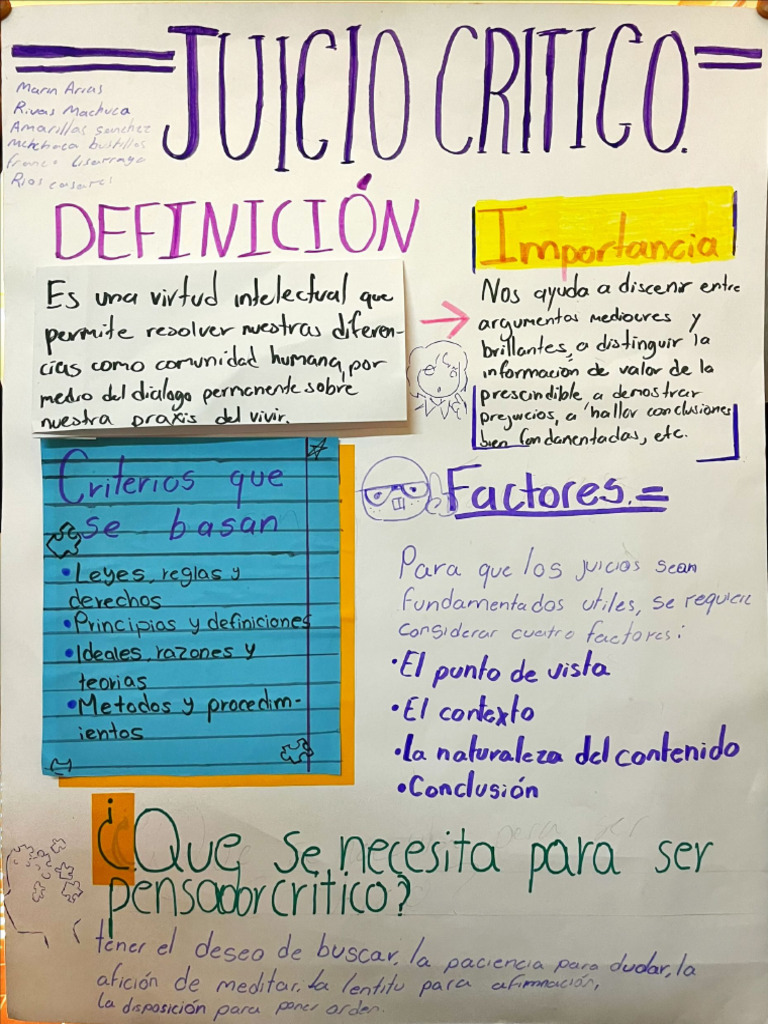 JUICIO CRITICO.
Marin Arias
Rivas Machuca
Amarillas Sanchez
Menchaca bustillos
Franco Lisarraga
Rios casares
DEFINICIÓN
Es una virtud intelectual que
permite resolver nuestras diferen-
cias como comunidad humana, por
medio del dialogo permanente sobre
nuestra praxis del vivir.
Importancia
Nos ayuda a discenir entre
argumentos mediocres y
brillantes, a distinguir la
información de valor de la
prescindible a demostrar
prejuicios, a hallar conclusiones
bien fundamentadas, etc.
Criterios que
se basan
•Leyes, reglas y
derechos
•Principias y definiciones
•Ideales, razones y
teorias
•Metodos y procedim-
ientos
Factores.=
Para que los juicios sean
fundamentados utiles, se requier
considerar cuatro factores:
•El punto de vista
•El contexto
•La naturaleza del contenido
•Conclusión
¿Que se necesita para ser
pensador critico?
tener el deseo de buscar, la paciencia para dudar, la
afición de meditar, la lentitu para afimnación,
la disposición para poner orden.